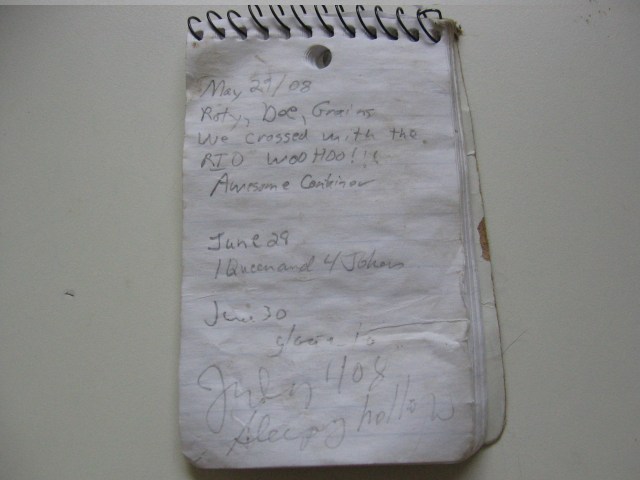 May 27/08
Doe,
We crossed with the
RIO WOO HOO!!!
Awesome Container
June 29
1 Queen and 4 Jokers
June 30
July 1/08
Sleepy hollow